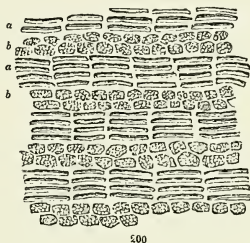 a
b
a
b
200